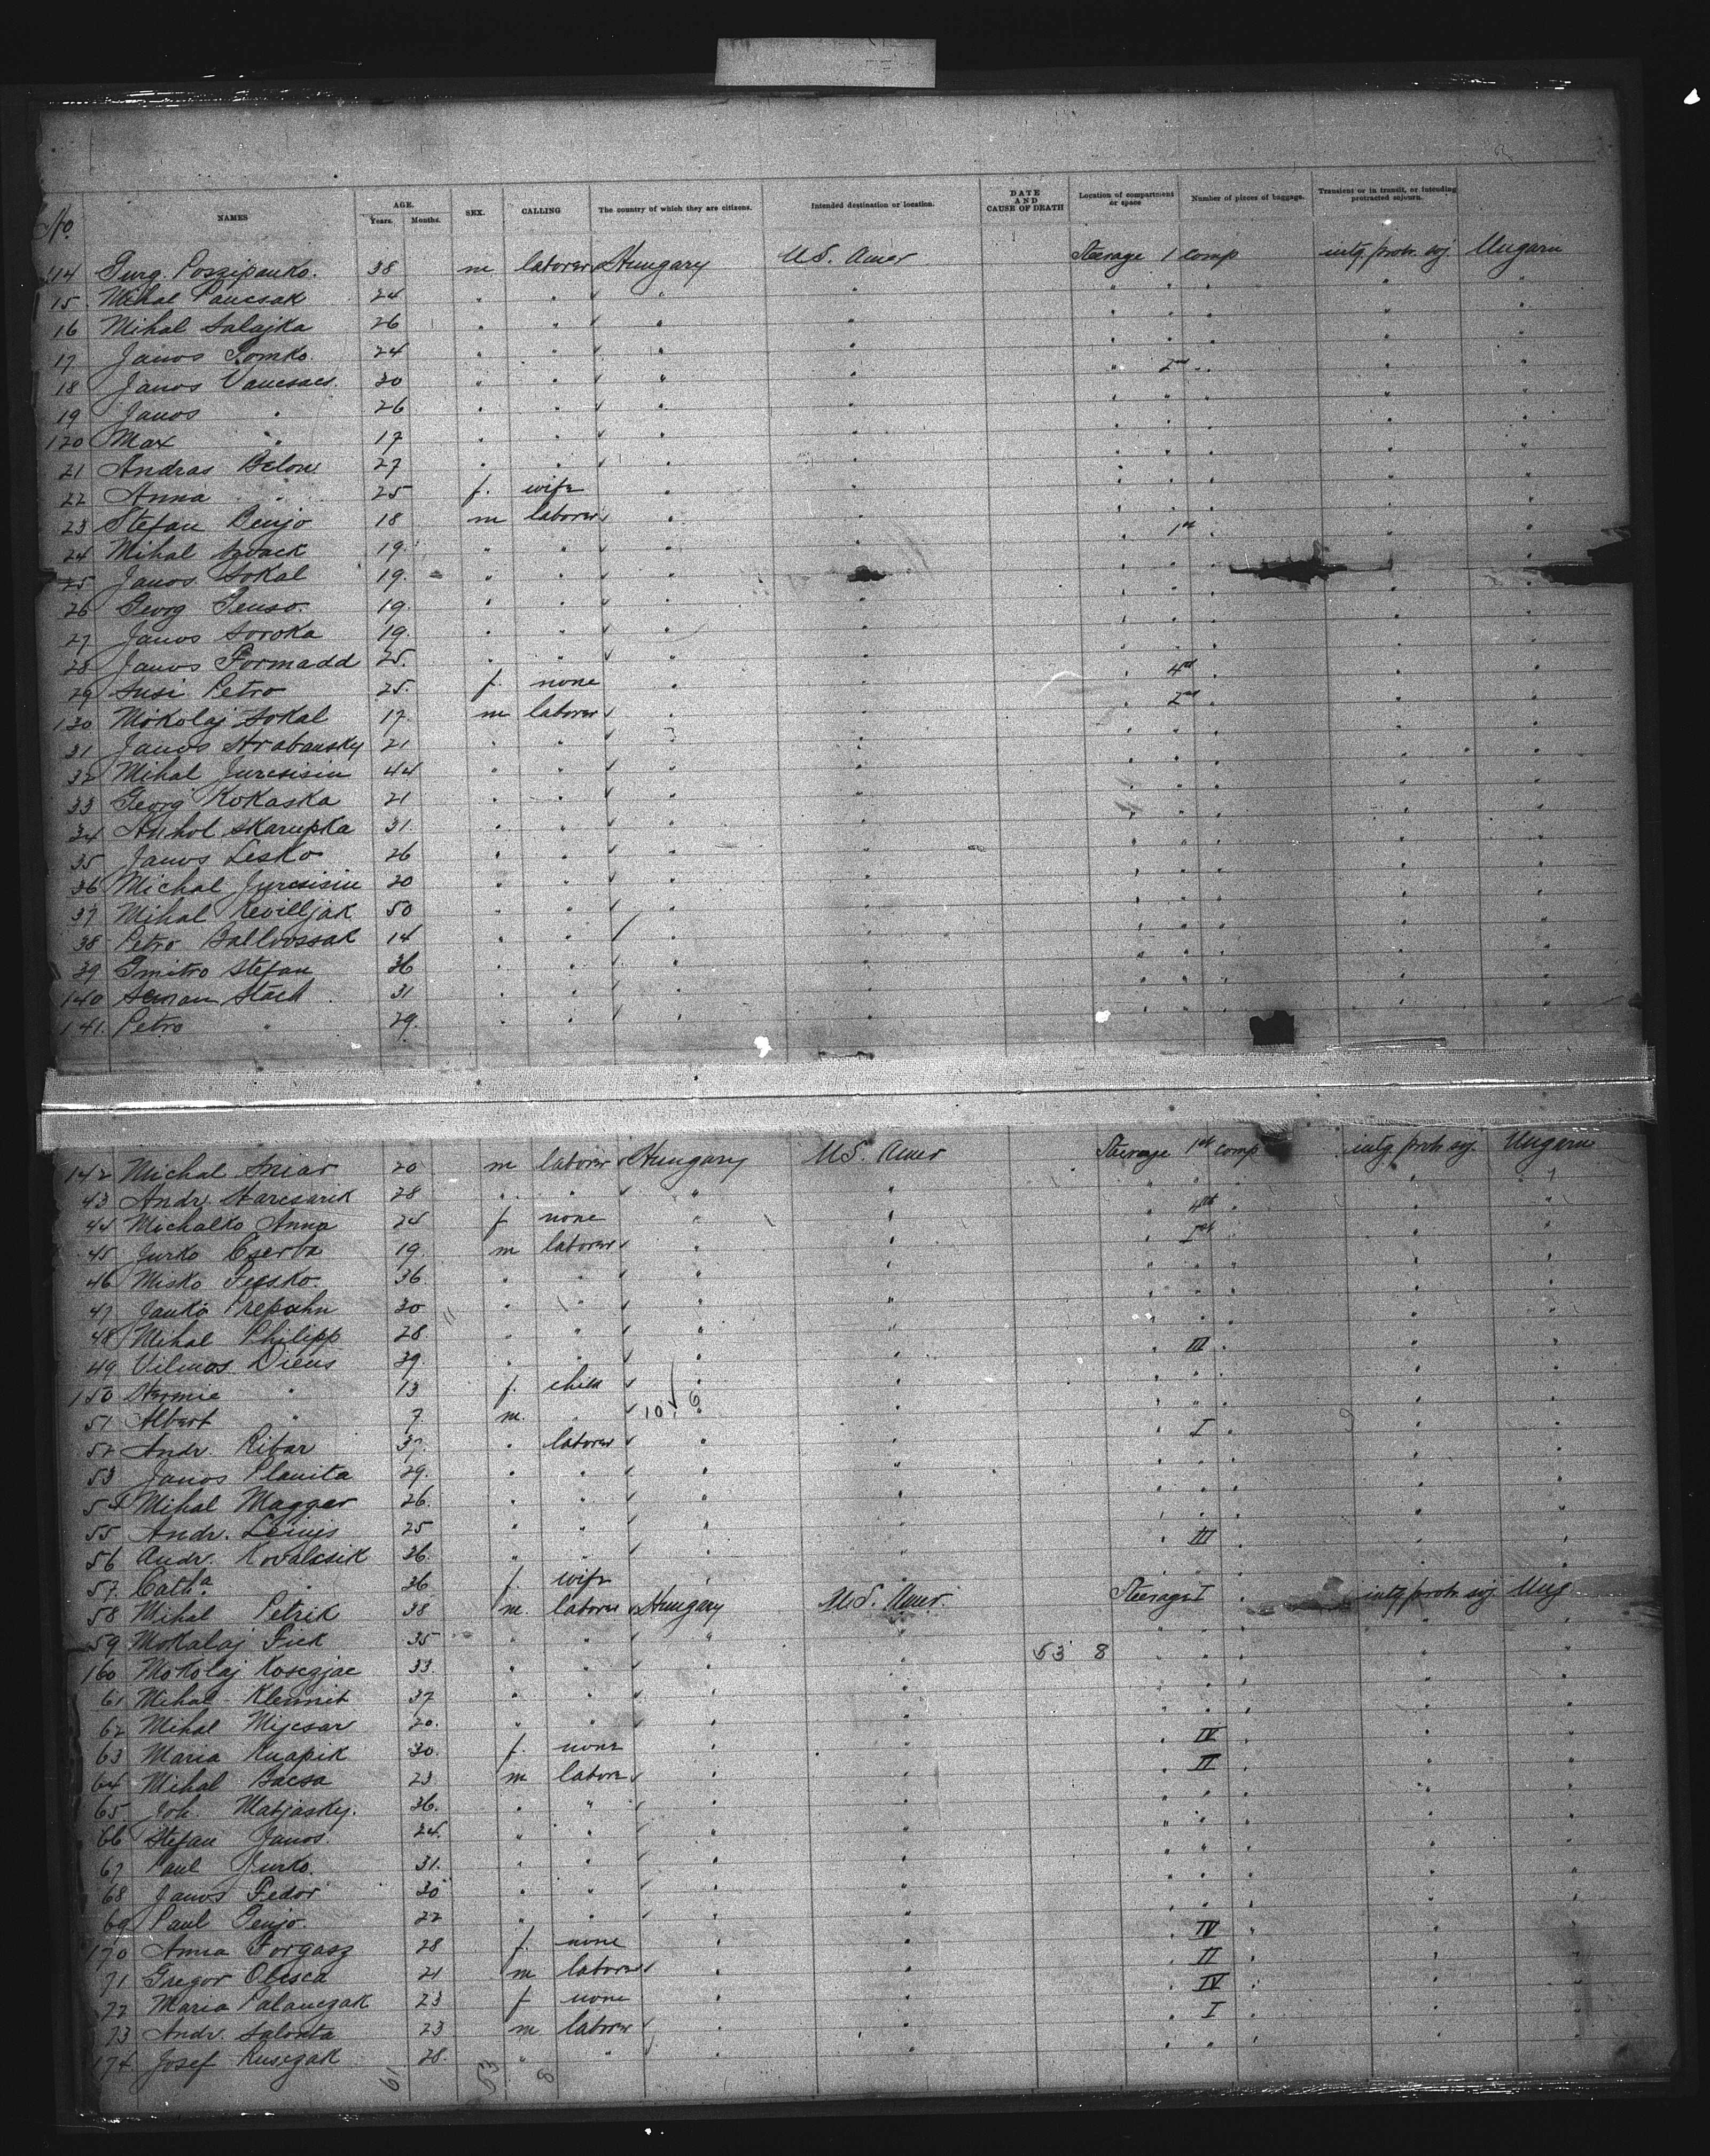 No. NAMES AGE. Years. Months. SEX. CALLING The country of which they are citizens. Intended destination or location. DATE AND CAUSE OF DEATH Location of compartment or space Number of pieces of baggage. Transient or in transit, or intending protracted sojourn.
114 Gurg. Poszipanko. 38 m laborer Hungary U.S. Amer Steerage 1 comp intg protr. soj. Ungarn
15 Mihal Pancsak 24 " " " " " " " " "
16 Mihal Salajka 26 " " " " " " " " "
17 Janos Tomko. 24 " " " " " " " " "
18 Janos Vancsacs. 30 " " " " " " " "
19 Janos " 26 " " " " " " " " "
120 Max " 17 " " " " " " " " "
21 Andras Belon 27 " " " " " " " " "
22 Anna " 25 f. wife " " " " " " "
23 Stefan Benjo 18 m laborer " " " " " "
24 Mihal 19. " " " " " 1st " " "
25 Janos Sokal 19. " " " " " " " "
26 Georg Genso. 19. " " " " " " " "
27 Janos Soroka 19. " " " " " " " "
28 Janos Formadd 25. " " " " " " " "
29 Susi Petro 25. f. none " " " " "
130 Mokolaj Sokal 17. m laborer " " " " "
31 Janos Hrabansky 21 " " " " " " " "
32 Mihal Jurcsisin 44 " " " " " " " "
33 Georg Kokaska 21 " " " " " " " "
34 Skarupka 31. " " " " " " " "
35 Janos Lesko 26 " " " " " " " "
36 Michal Jurcsisin 20 " " " " " " " "
37 Mihal Revilljak 50 " " " " " " " "
38 Petro Ballvossak 14 " " " " " " " "
39 Gmitro Stefan 36 " " " " " " " "
140 Seman Stach 31 " " " " " " " "
141. Petro " 29. " " " " " " " "
142 Michal Sniar 20 m laborer Hungary U.S. Amer Steerage 1st comp intg protr soj. Ungarn
43 Andr. Harcsarik 28 " " " " " " " "
44 Michalko Anna 24 f none " " " 4th " " "
45 Jurko Cserba 19. m laborer " " " " " "
46 Misko Fecsko. 36 " " " " " " " "
47 Janko Prepuhn 30 " " " " " " " "
48 Mihal Philipp 28 " " " " " " " "
49 Vilmos Diens 39. " " " " " III " " "
150 Hermie " 13 f. child " " " " " "
51 Albert " 7. m. " 10 6 " " " " "
52 Andr. Ribar laborer " " " I " " "
53 Janos Planita 29. " " " " " " " "
54 Mihal Maggar 26. " " " " " " " "
55 Andr. 25 " " " " " " " "
56 Andr. Kovalcsik 36. " " " " " III " " "
57. Catha. " 36 f. wife " " " " " "
58 Mihal Petrik 38 m. laborer Hungary U.S. Amer. Steerage I intg protr. soj. Ung
59 Mokalaj Fick 35 " " " " " " " "
160 Mokolaj Kosczjac 33. " " " " 53 8 " " " "
61 Mihal Klemit 37 " " " " " " " "
62 Mihal Mijcsar 20. " " " " " " " "
63 Maria Knapik 30. f. none " " " IV " " "
64 Mihal Bacsa 23. m laborer " " " II " " "
65 Joh. Matjasky. 36. " " " " " " " "
66 Stefan Janos 24. " " " " " " " "
67 Paul Jurko. 31. " " " " " " " "
68 Janos Fedor 30 " " " " " " " "
69 Paul Genjo. 22 " " " " " " " "
170 Anna Forgasz 28 f. none " " " IV " " "
71 Gregor Olesca 21 m laborer " " " II " " "
72 Maria Palanczak 23 f none " " " IV " " "
73 Andr. Salonta 23 m laborer " " " I " " "
174 Josef Rusczak 28. " " " " " " "
61 53 8